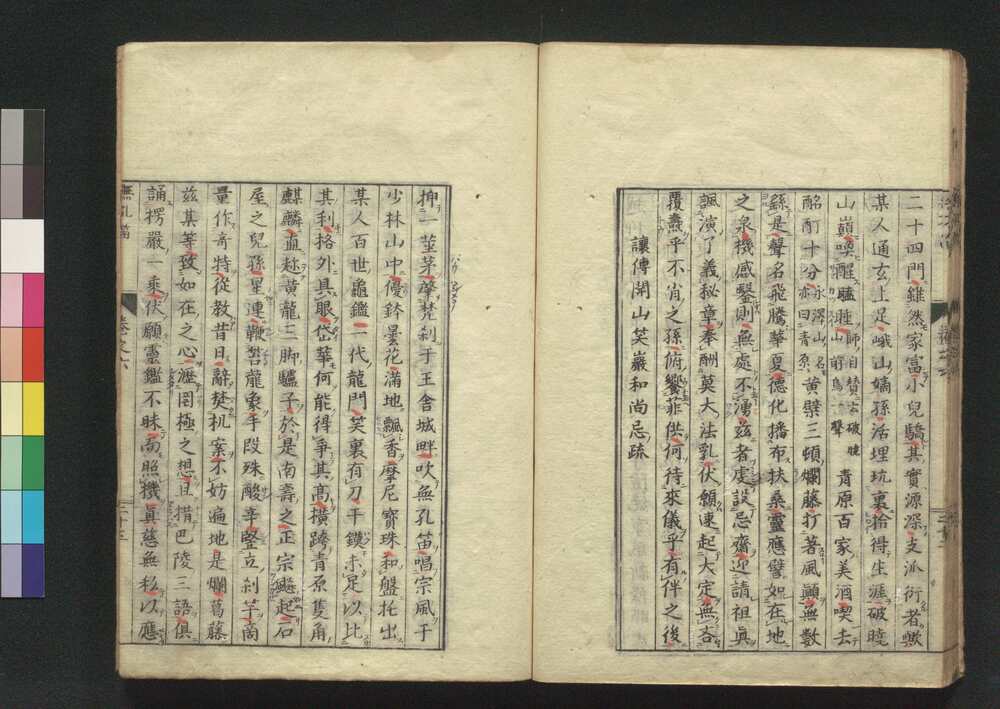 二十四門雖然家富小兒驕其實源深支派衍者歟
某人通玄上足峨山嫡孫活埋坑裏拾得生涯破曉
山巔喚醒瞌睡師自賛云破曉山前鳥一聲青原百家美酒喫去
酩酊十分永澤山名亦曰青原黄檗三頓爛藤打著風顛無數
繇是聲名飛騰華夏德化播布扶桑靈應譬如在地
之泉機感鑿則無處不湧茲者虔設忌齋迎請祖眞
諷演了義秘章奉酬莫大法乳伏願速起大定無吝
覆燾乎不肖之孫俯饗菲供何待來儀乎有伴之後
讓傳開山笑巖和尚忌疏
抻一莖茅㨃梵刹于王舍城畔吹無孔笛唱宗風于
少林山中優鉢曇花滿地飄香摩尼寶珠和盤托出
某人百世龜鑑一代龍門笑裏有刀干鏌未足以比
其利格外具眼岱華何能得爭其高橫跨青原隻角
麒麟直趂黄龍三脚驢子於是南壽之正宗颺起石
屋之兒孫星連鞭笞龍象手段殊酸辛竪立刹竿商
量作奇特從教昔日辭焚机案不妨遍地是爛葛藤
茲其等致如在之心瀝罔極之想且措巴陵三語俱
誦楞嚴一乘伏願靈鑑不昧向照機眞慈無私以應
無孔笛
卷之六
二十三